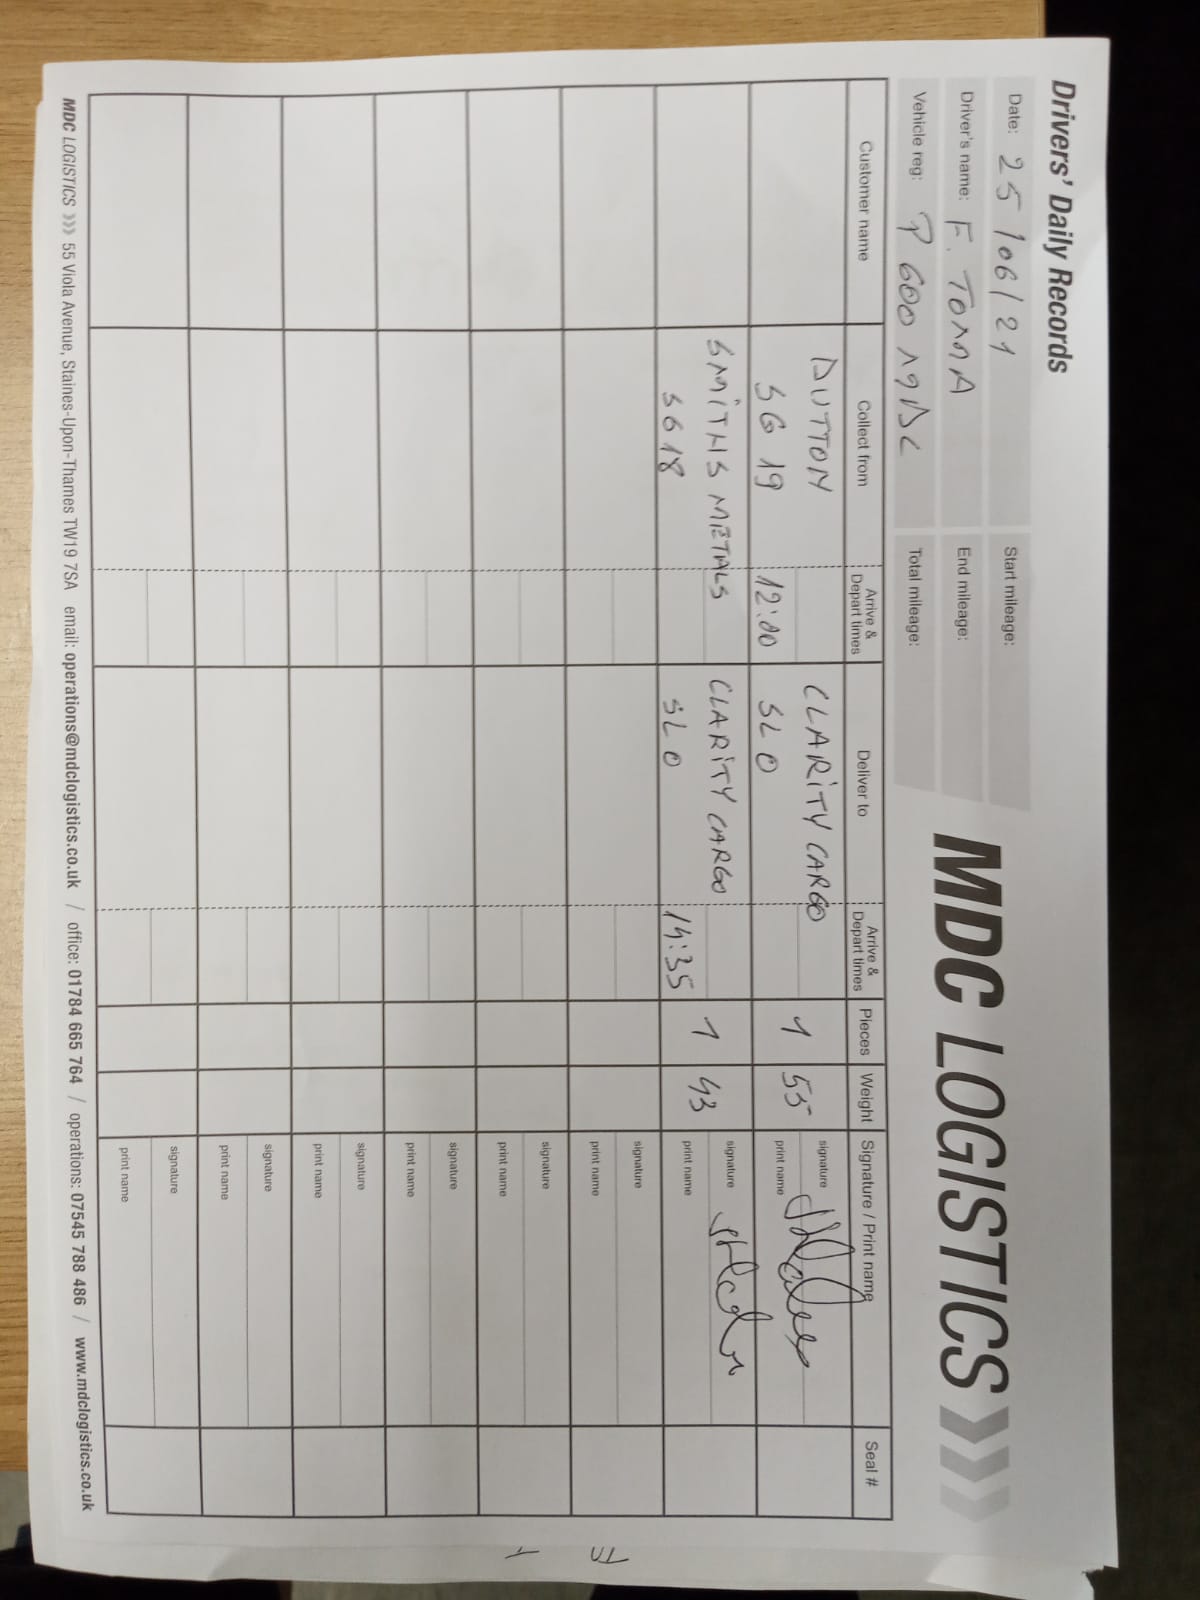 Drivers' Daily Records
MDC LOGISTICS
Date: 25/06/21
Start mileage:
Driver's name: F. TOMA
End mileage:
Vehicle reg: P600 MDC
Total mileage:
Customer name Collect from Arrive & Depart times Deliver to Arrive & Depart times Pieces Weight Signature / Print name Seal #
DUTTON CLARITY CARGO signature
SG 19 12:00 SLO 1 55 print name
SMITHS METALS CLARITY CARGO signature
SG18 SLO 14:35 1 43 print name
signature
print name
signature
print name
signature
print name
signature
print name
signature
print name
signature
print name
MDC LOGISTICS 55 Viola Avenue, Staines-Upon-Thames TW19 7SA email: operations@mdclogistics.co.uk / office: 01784 665 764 / operations: 07545 788 486 / www.mdclogistics.co.uk